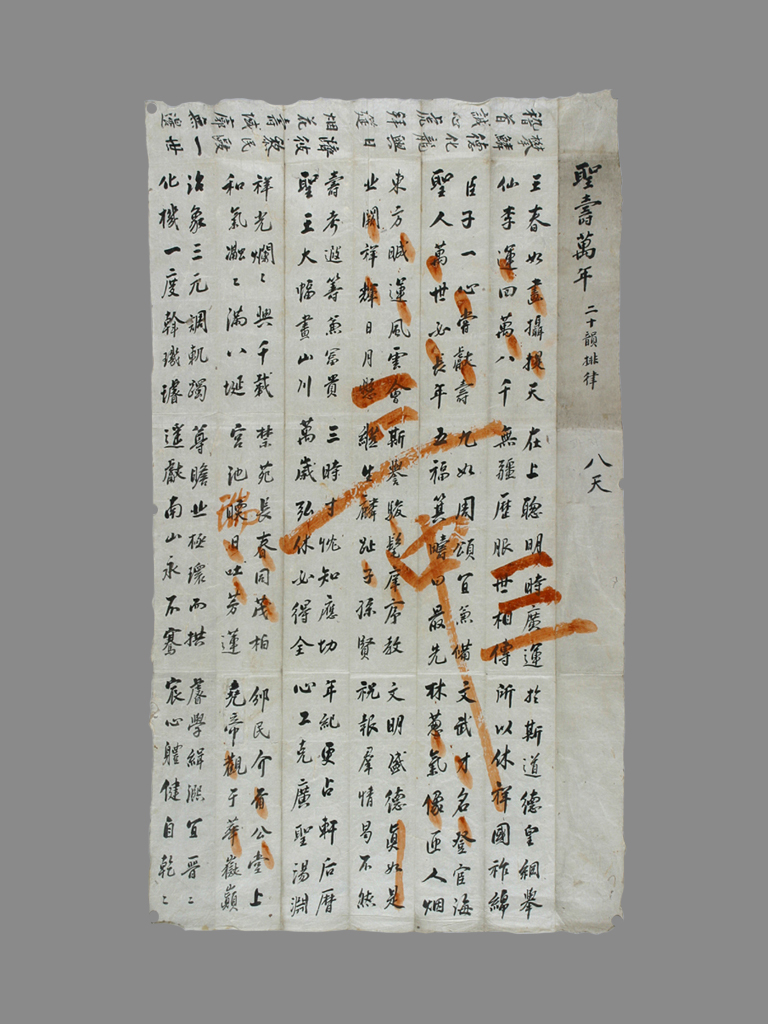 聖壽萬年 二十韻排律
八天
攀鱗德化龍興日
稽首誠心虎拜筵
濟彼黎民 一世
烟花壽域廓無邊
王春如畫攝提天 在上聰明時廣運 於斯道德皇綱舉
仙李運四萬八千 無疆歷服世相傳 所以休祥國祚綿
臣子一心嘗獻壽 九如周頌宜兼備 文武才名登宦海
聖人萬世必長年 五福箕疇曰最先 林蔥氣像匝人烟
東方 運風雲會 斯譽駿髦庠序教 文明盛德眞如是
業開祥輝日月懸 繼生麟趾子孫賢 祝報羣情曷不然
壽考遐籌兼富貴 三時寸忱知應切 年紀更占軒后曆
聖王大幅畫山川 萬歲弘休必得全 心工克廣聖湯淵
祥光爛〻興千載 禁苑長春同茂柏 邠民介壽公堂上
和氣瀜〻滿八埏 宮池暖日吐芳蓮 堯帝觀于華嶽巔
治象三元調軌躅 尊瞻北極環而拱 睿學緝熙宜晉〻
化機一度斡璣璿 遙獻南山永不騫 宸心軆健自乾〻
三
二
一
中